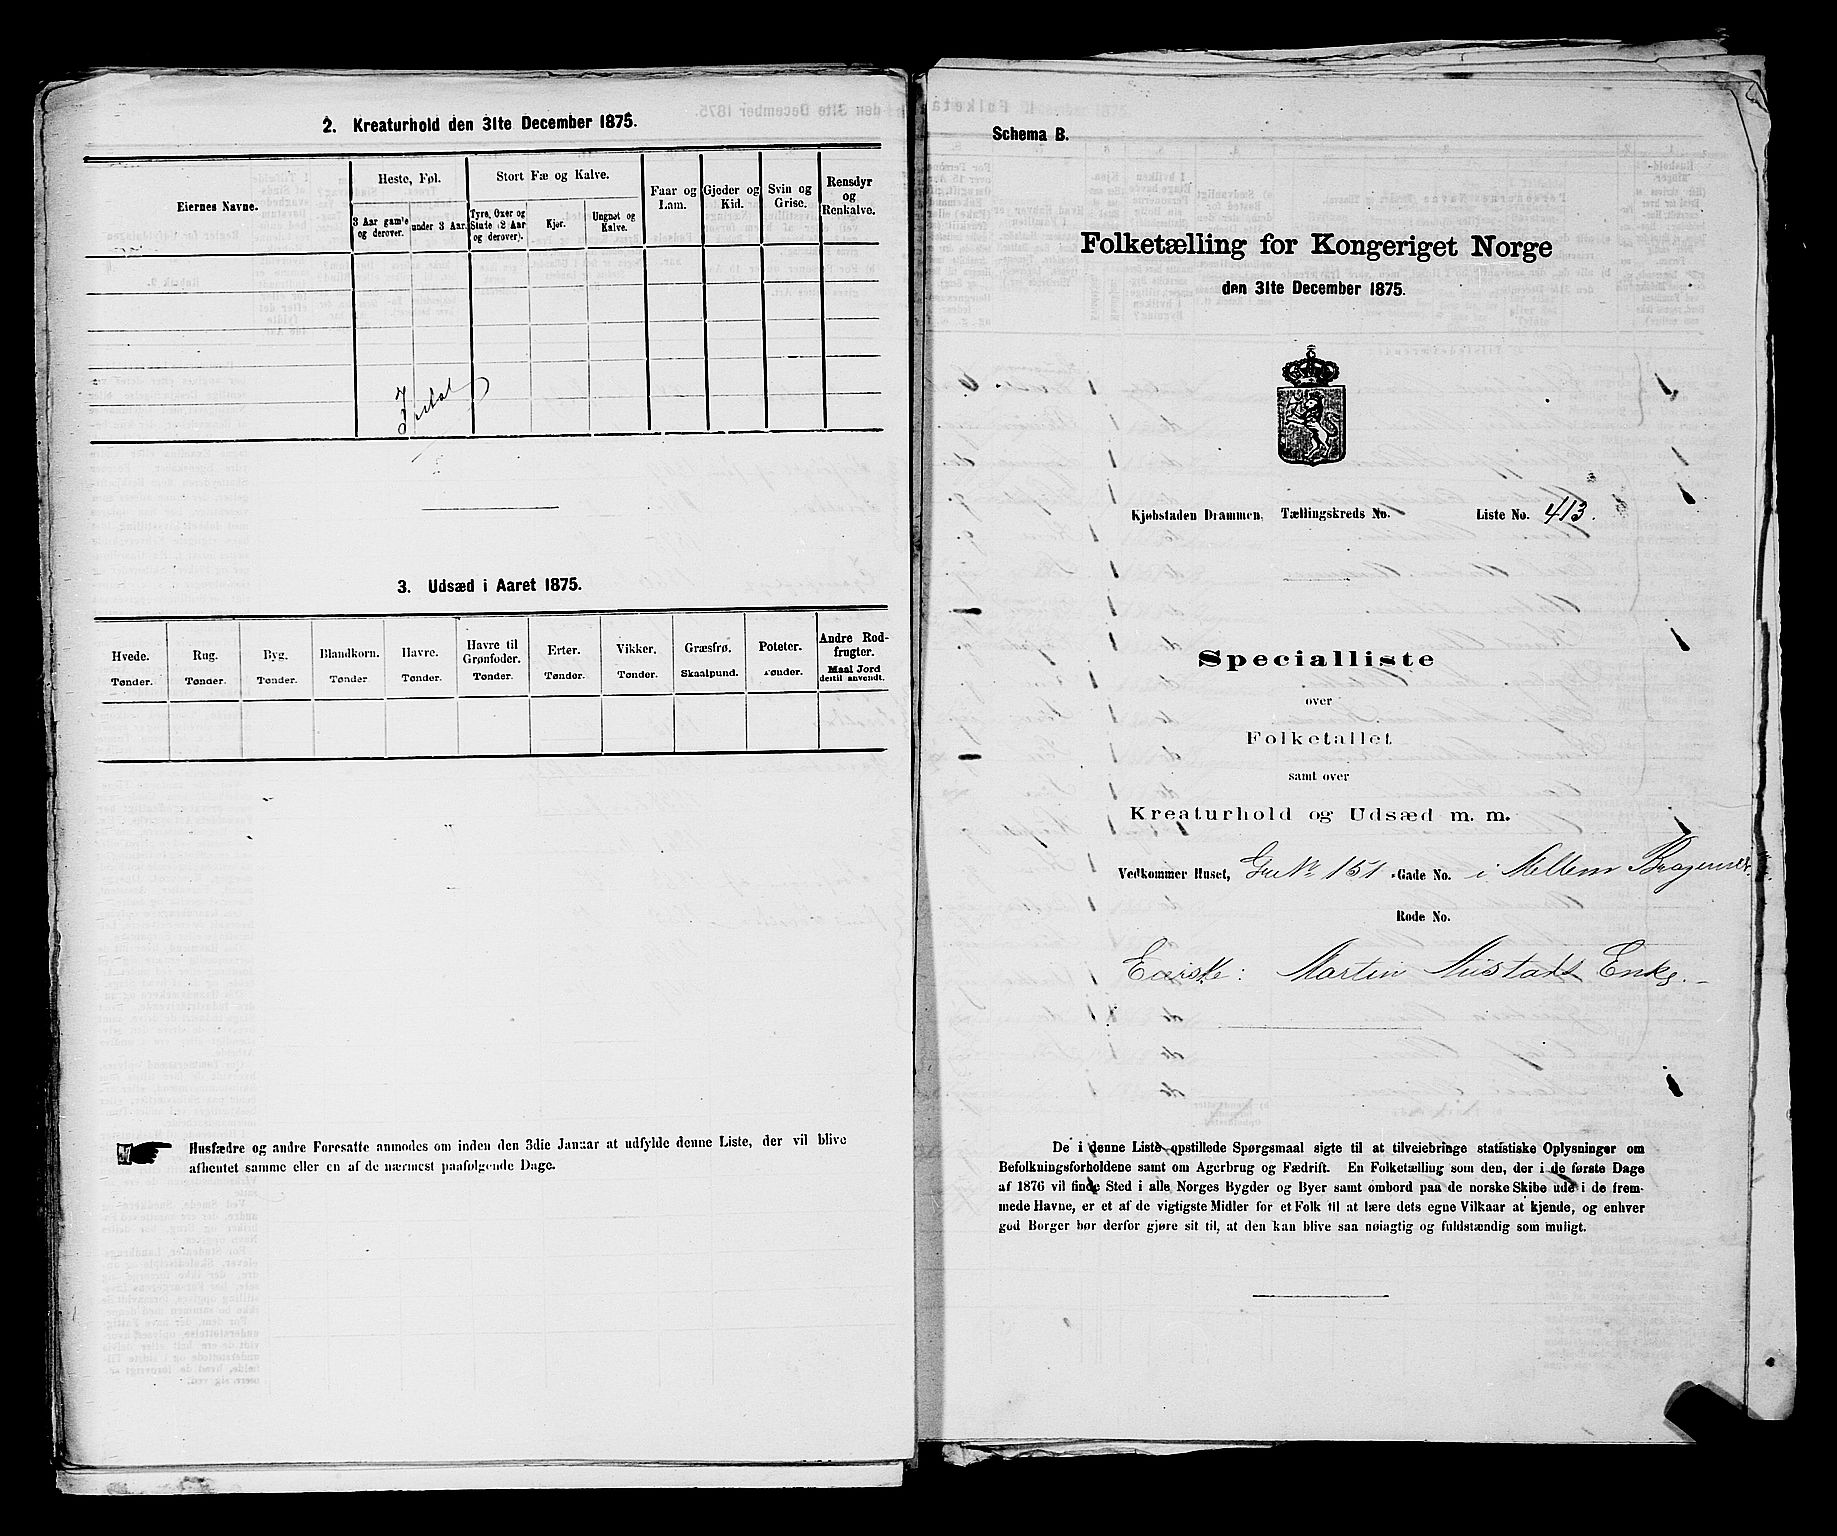 2. Kreaturhold den 31te December 1875.
Eiernes Navne.
Heste, Føl.
Stort Fæ og Kalve.
Faar og Lam.
Gjeder og Kid.
Svin og Grise.
Rensdyr og Renkalve.
3 Aar gamle og derover.
under 3 Aar.
Tyre, Oxer og Stute (2 Aar og derover).
Kjør.
Ungnøt og Kalve.
3. Udsæd i Aaret 1875.
Hvede. Rug. Byg. Blandkorn. Havre. Havre til Grønfoder. Erter. Vikker. Græsfrø. Poteter. Andre Rodfrugter.
Tønder. Tønder. Tønder. Tønder Tønder. Tønder. Tønder. Tønder. Skaalpund. Tønder. Maal Jord dertil anvendt.
Husfædre og andre Foresatte anmodes om inden den 3die Januar at udfylde denne Liste, der vil blive
afhentet samme eller en af de nærmest paafølgende Dage.
Schema B.
Folketælling for Kongeriget Norge
den 31te December 1875.
Kjøbstaden Drammen, Tællingskreds No. Liste No. 413.
Specialliste
over
Folketallet
samt over
Kreaturhold og Udsæd m. m.
Vedkommer Huset, Gr No 151 Gade No. i Mellem Bragernes
Rode No.
Eierske: Martin Mustads Enke.
De i denne Liste opstillede Spørgsmaal sigte til at tilveiebringe statistiske Oplysninger om
Befolkningsforholdene samt om Agerbrug og Fædrift. En Folketælling som den, der i de første Dage
af 1876 vil finde Sted i alle Norges Bygder og Byer samt ombord paa de norske Skibe ude i de frem-
mede Havne, er et af de vigtigste Midler for et Folk til at lære dets egne Vilkaar at kjende, og enhver
god Borger bør derfor gjøre sit til, at den kan blive saa nøiagtig og fuldstændig som muligt.